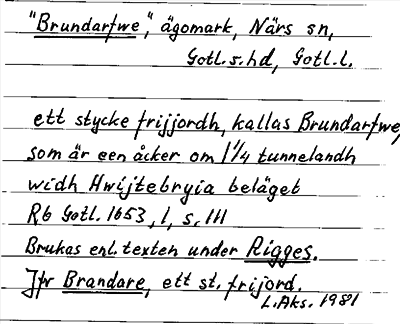 "Brundarfwe", ägomark, Närs sn,
Gotl.s.hd, Gotl.l.
ett stycke frijjordh, kallas Brundarfwe,
som är een åcker om 1 1/4 tunnelandh
widh Hwijtebryia beläget
Rb Gotl. 1653, 1, s. 111
Brukas enl. texten under Rigges.
Jfr Brandare, ett st. frijord.
L.Aks. 1981